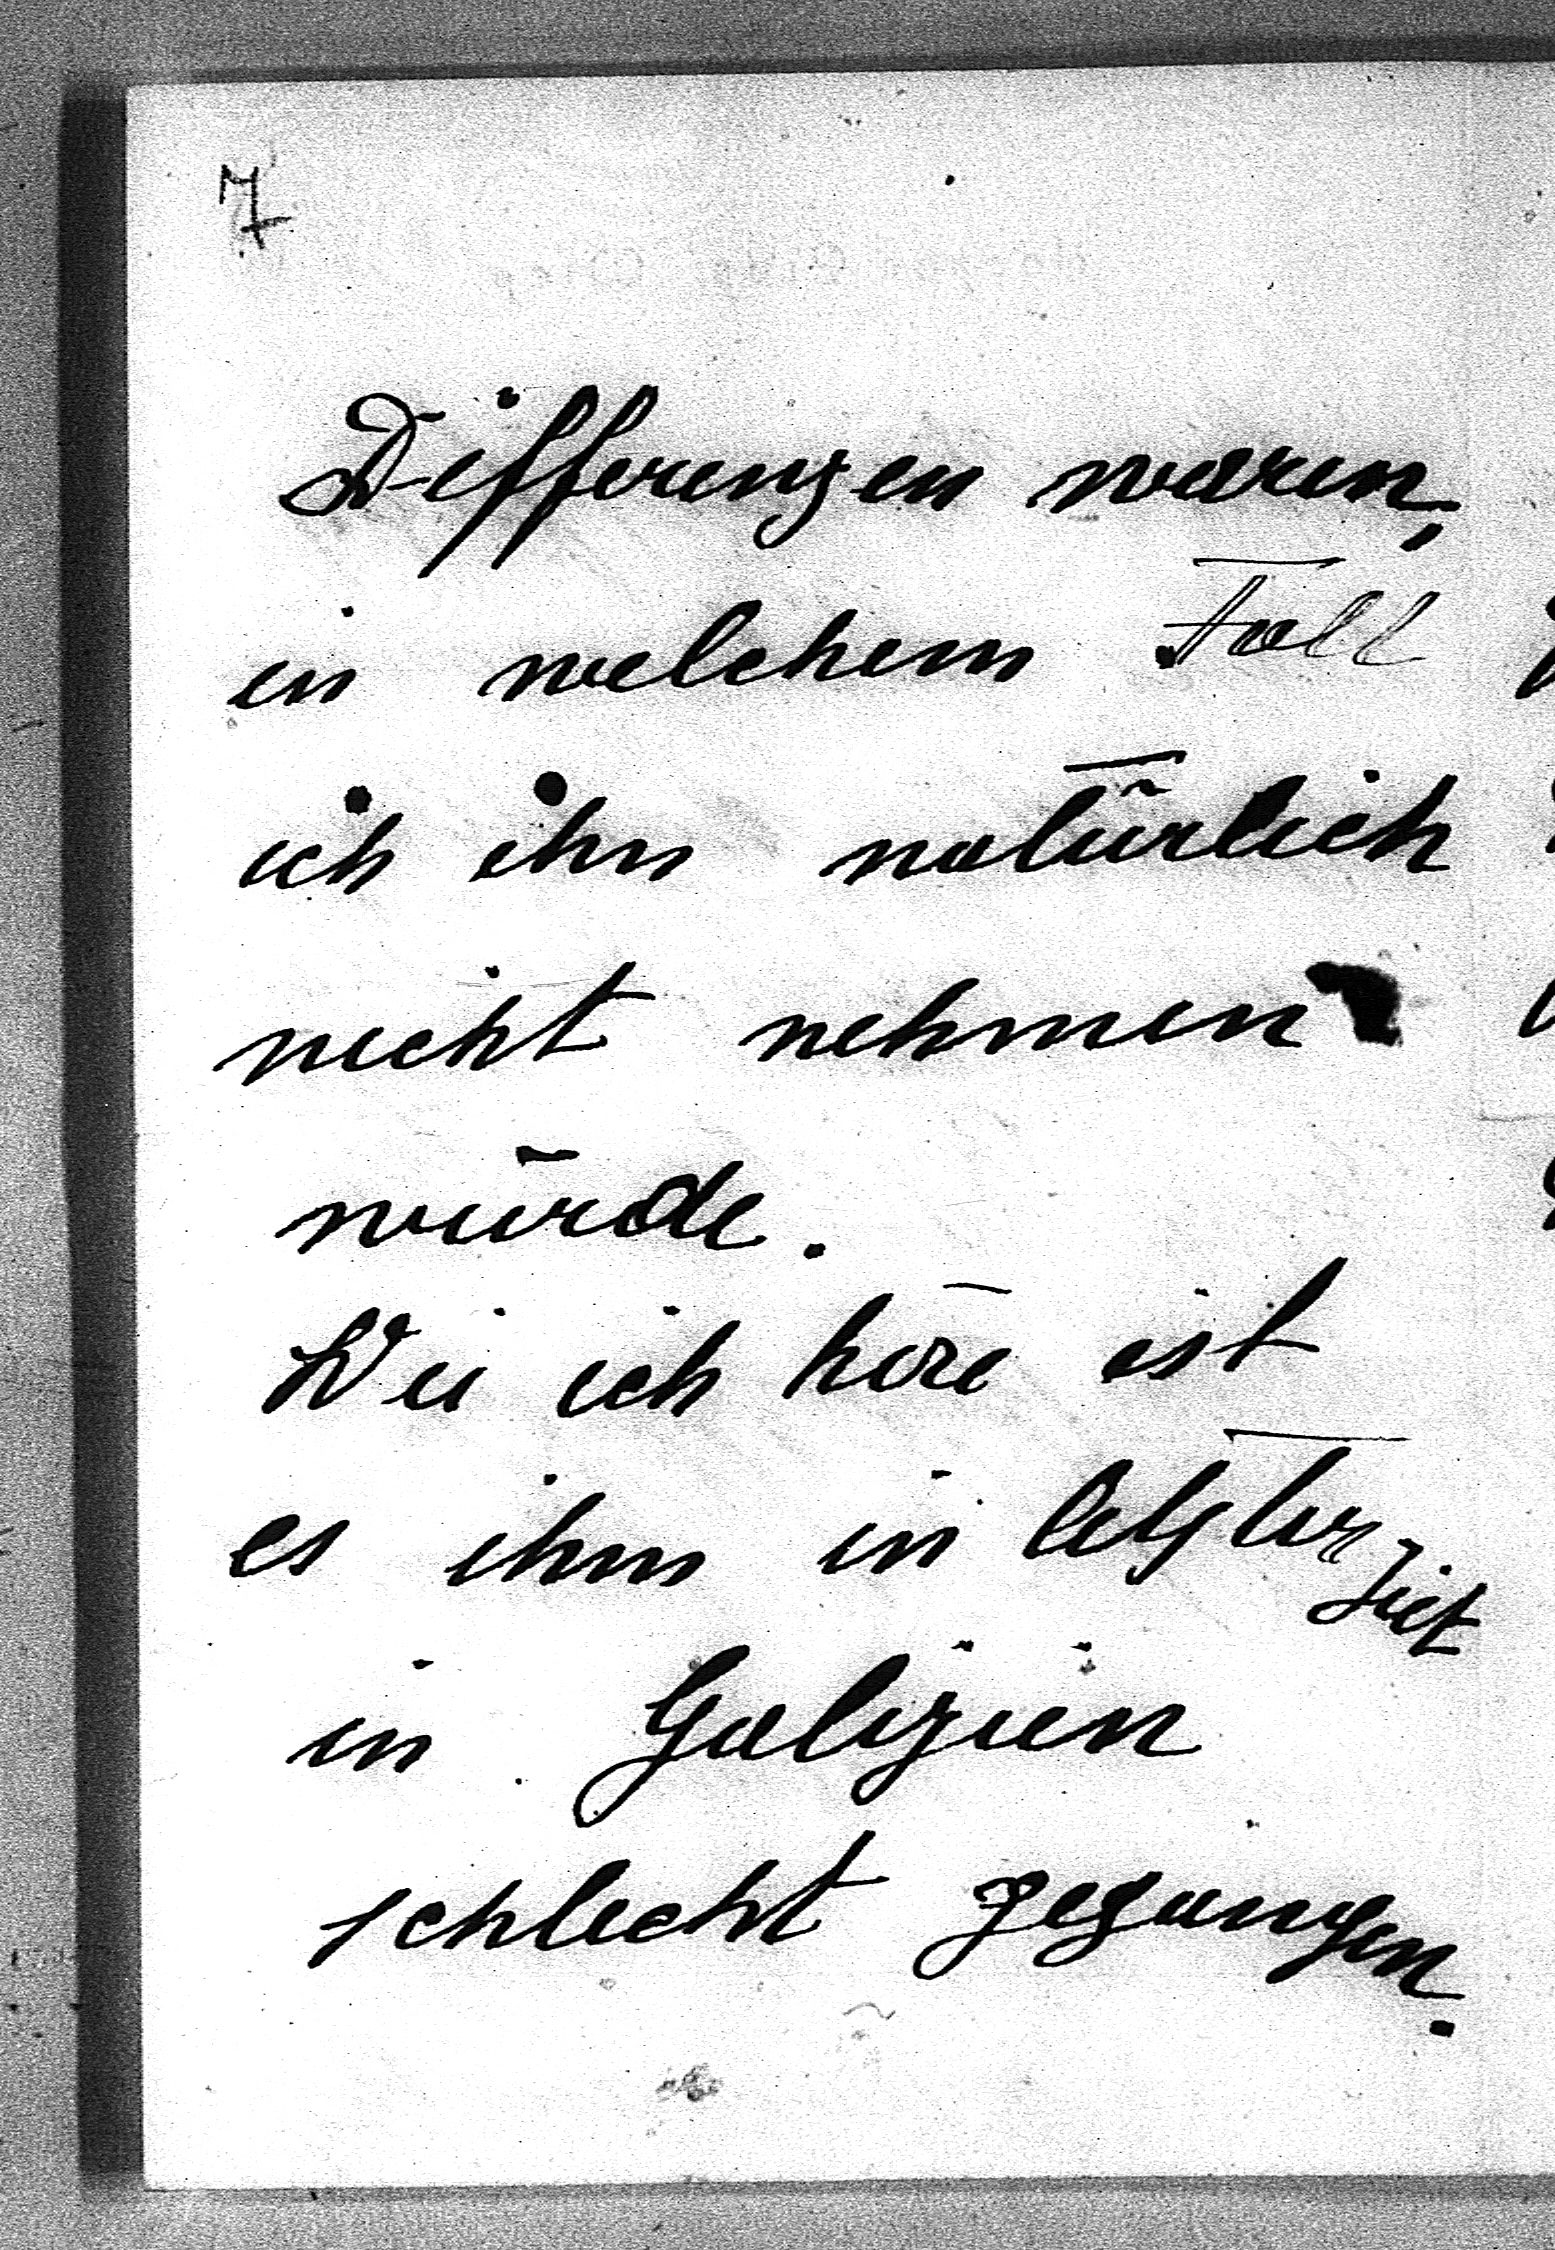 7
Differenzen waren,
in welchem Fall
ich ihn natürlich
nicht nehmen
würde.
Wie ich höre ist
es ihm in letzter
Zeit
in Galizien
schlecht gegangen.